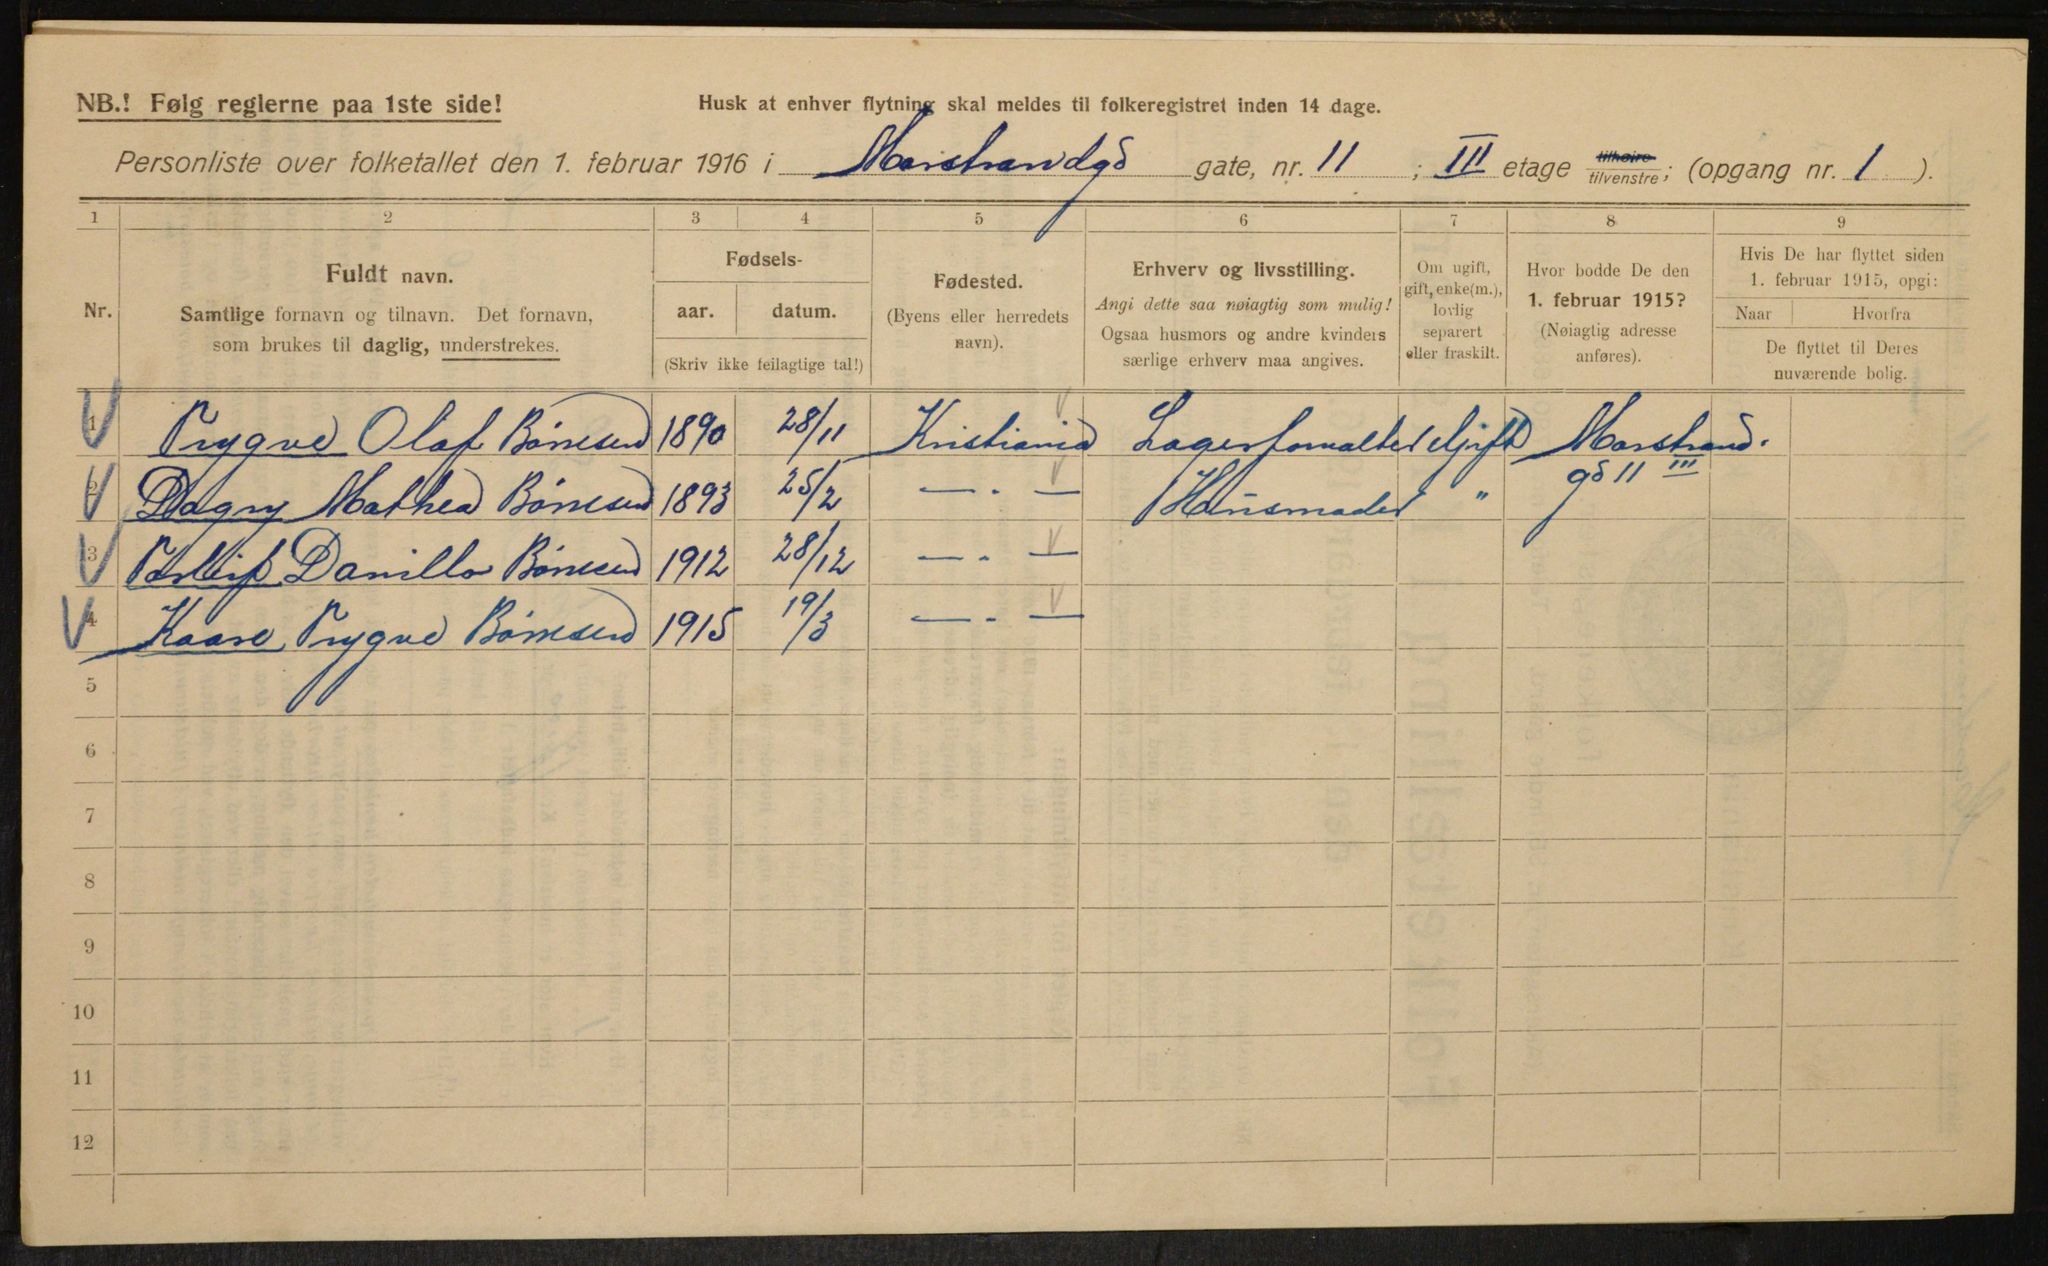 NB.! Følg reglerne paa 1ste side!
Husk at enhver flytning skal meldes til folkeregistret inden 14 dage.
Personliste over folketallet den 1. februar 1916 i Marstrandgd gate, nr. 11 ; III etage tilhøire tilvenstre; (opgang nr. 1 ).
1 2 3 4 5 6 7 8 9
Nr.
Fuldt navn.
Samtlige fornavn og tilnavn. Det fornavn,
som brukes til daglig, understrekes.
Fødsels-
aar. datum.
(Skriv ikke feilagtige tal!)
Fødested.
(Byens eller herredets
navn).
Erhverv og livsstilling.
Angi dette saa nøiagtig som mulig!
Ogsaa husmors og andre kvinders
særlige erhverv maa angives.
Om ugift,
gift, enke(m.),
lovlig
separert
eller fraskilt.
Hvor bodde De den
1. februar 1915?
(Nøiagtig adresse
anføres).
Hvis De har flyttet siden
1. februar 1915, opgi:
Naar Hvorfra
De flyttet til Deres
nuværende bolig.
1 Trygve Olaf Børresen 1890 28/11 Kristiania Lagerforvalter Gift Marstrand.
gd 11 III
2 Dagny Mathea Børresen 1893 25/2 — . — Husmoder "
3 Torleif Danillo Børresen 1912 28/12 — . —
4 Kaare Trygve Børresen 1915 19/3 — . —
5
6
7
8
9
10
11
12